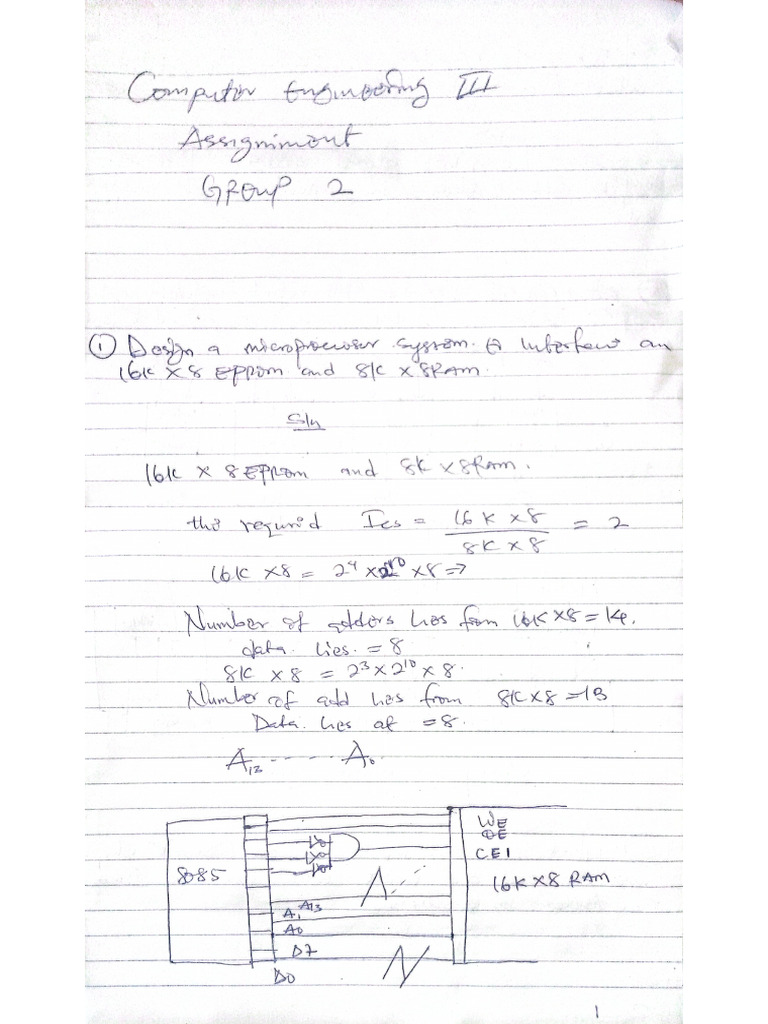 Computer Engineering III
Assignment
Group 2
① Design a microprocessor system. Interface an
16K x 8 EPROM and 8K x 8RAM.
Sln
16K x 8 EPROM and 8K x 8Ram.
the required Ics = 16K x8 / 8K x 8 = 2
16K x8 = 2⁴ x 2¹⁰ x8 =>
Number of adders lies from 16K x8 = 14.
data lies. = 8
8K x 8 = 2³ x 2¹⁰ x 8.
Number of add lies from 8K x 8 = 13
Data lies of = 8.
A₁₂ ------ A₀
8085
WE
OE
CE1
16K x8 RAM
A₁₃
A₁
A0
D7
D0
1